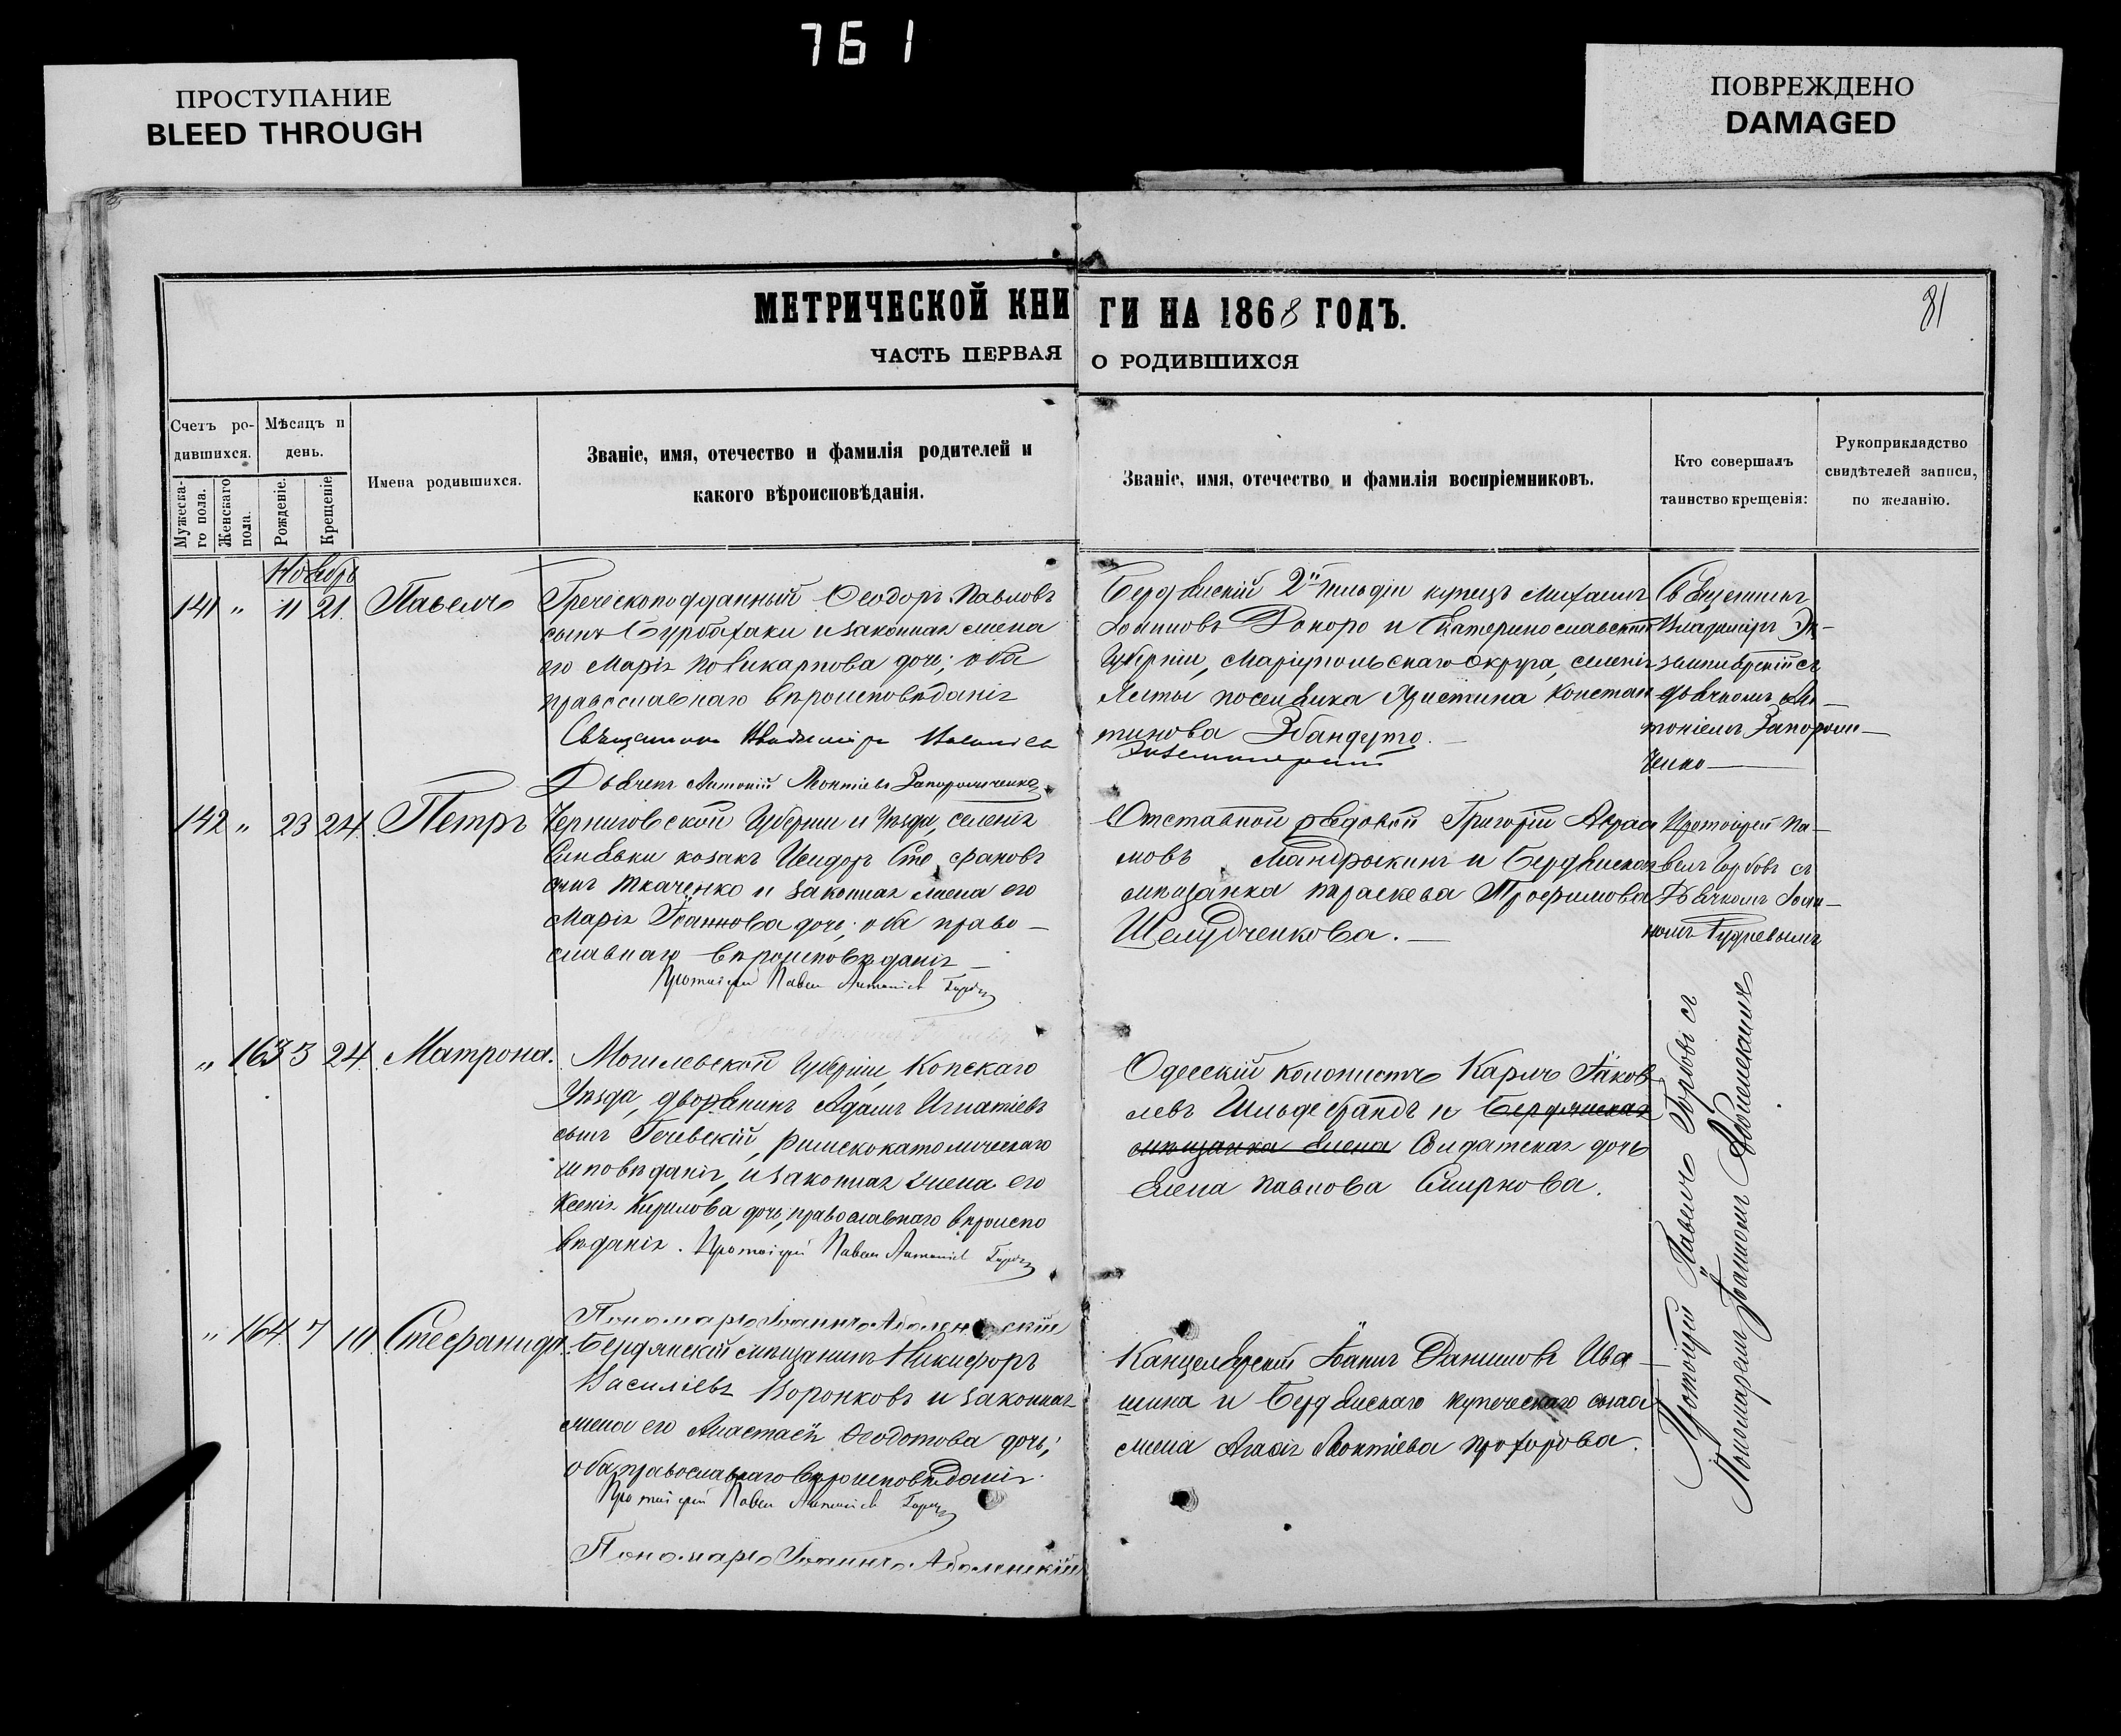 761
ПРОСТУПАНИЕ
BLEED THROUGH
ПОВРЕЖДЕНО
DAMAGED
МЕТРИЧЕСКОЙ КНИГИ НА 1868 ГОДЪ.
81
ЧАСТЬ ПЕРВАЯ О РОДИВШИХСЯ
Счетъ ро-
дившихся.
Мужеска-
го пола.
Женскаго
пола.
Мѣсяцъ и
день.
Рожденіе.
Крещеніе
Имена родившихся.
Званіе, имя, отечество и фамилія родителей и
какого вѣроисповѣданія.
Званіе, имя, отечество и фамилія воспріемниковъ.
Кто совершалъ
таинство крещенія:
Рукоприкладство
свидѣтелей записи,
по желанію.
Ноябрь
141 " 11 21. Павелъ
Греческоподданный Ѳеодоръ Павловъ
сынъ Бурбахаки и законная жена
его Марія Поликарпова дочь; оба
православнаго вѣроисповѣданія
Священникъ Владиміръ
Дьячекъ Антоній Леонтіевъ Запорожченко
Бердянскій 2й гильдіи купецъ Михаилъ
Іоанновъ Рокоро и Екатеринославской
Губерніи, Маріупольскаго округа, селенія
Ялты поселянка Христина Констан
тинова Збандуто.
Священникъ
Владиміръ
съ
дьячкомъ Ан-
тоніемъ Запорож-
ченко
142 " 23 24. Петръ
Черниговской Губерніи и Уѣзда, селенія
Синявки козакъ Исидоръ Стефановъ
сынъ Ткаченко и законная жена его
Марія Іоаннова дочь; оба право-
славнаго вѣроисповѣданія
Протоіерей Павелъ Горбовъ
Отставной рядовой Григорій
мовъ Мандрыкинъ и Бердянская
мѣщанка Параскева Трофимова
Шелудченкова.
Протоіерей Па-
велъ Горбовъ съ
Дьячкомъ Іоан-
номъ Гудневымъ
" 163 3 24. Матрона.
Могилевской Губерніи, Копскаго
Уѣзда, дворянинъ Адамъ Игнатіевъ
сынъ Гечевскій, римскокатолическаго
исповѣданія, и законная жена его
Ксенія Кирилова дочь, православнаго вѣроиспо
вѣданія. Протоіерей Павелъ Горбовъ
Пономарь Іоаннъ Аболенскій
Одесскій колонистъ Карлъ Іаков
левъ Шильдебрандъ и Бердянская
мѣщанка Елена Солдатская дочь
Елена Павлова Смирнова.
Протоіерей Павелъ Горбовъ съ
Пономаремъ Іоанномъ Аболенскимъ
" 164. 7 10. Стефанида.
Бердянскій мѣщанинъ Никифоръ
Василіевъ Воронковъ и законная
жена его Анастасія Ѳеодотова дочь;
оба православнаго вѣроисповѣданія.
Протоіерей Павелъ Горбовъ
Пономарь Іоаннъ Аболенскій
Канцелярскій Іоаннъ Даниловъ Ива-
шина и Бердянскаго купеческаго сына
жена Агафія Леонтіева Прохорова.